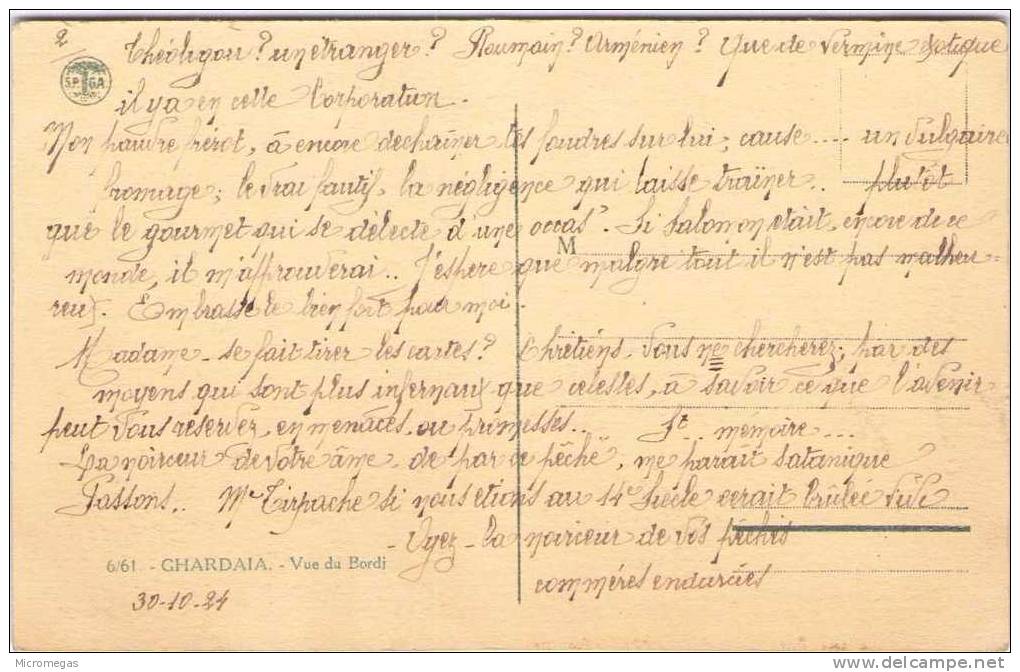 2/
Théoligou? un etranger? Roumain? Arménien? Que de vermine exotique
S.P. GA
il y a en cette Corporation.
Mon pauvre frérot, à encore dechainer tes foudres sur lui, cause .... un vulgaire
fromage; le vrai fautif, la négligence qui laisse traïner.. plutôt
que le gourmet qui se délecte d'une occas? Si Salomon etait, encore de ce
M
monde, il m'approuverai.. J'espere que malgre tout il n'est pas malheu-
reux. Embrasse le bien fort pour moi.
Madame - se fait tirer les cartes? Chrétiens - Vous ne chercherez, par des
moyens qui sont plus infernaux que celestes, à savoir ce que l'avenir
peut vous reserver, en menaces, ou promesses.. St .. mémoire...
La noirceur de votre âme - de par ce pêché, me parait satanique
Passons.. Me Tirpache si nous etions au 14e Siécle serait brûlée vive
- Oyez - la noirieur de vos péchés
6/61. - GHARDAIA. - Vue du Bordj
commères endurcies
30-10-24
Micromegas
delcampe.net